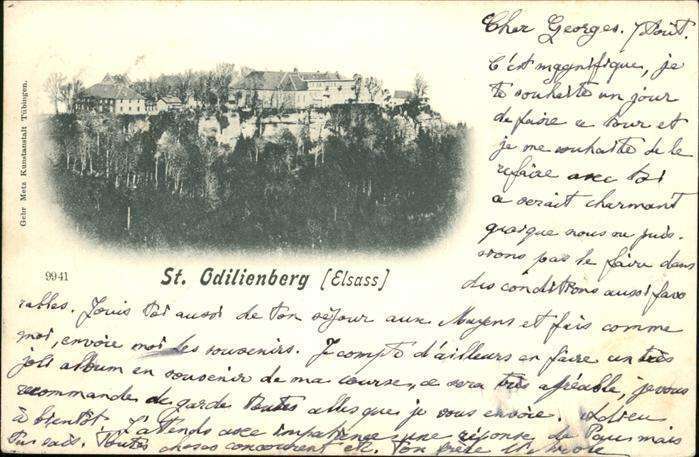 Cher Georges. 7 Août.
C'est magnifique, je
te souhaite un jour
de faire ce tour et
je me souhaite de le
refaire avec toi
ce serait charmant
quoique nous ne puis-
sions pas le faire dans
des conditions aussi favo
Gebr Metz Kunstanstalt Tübingen.
9941
St. Odilienberg [Elsass]
rables. Jouis toi aussi de ton séjour aux Mayens et fais comme
moi, envoie moi des souvenirs. Je compte d'ailleurs en faire un très
joli album en souvenir de ma course, ce sera très agréable, je vous
recommande de garde toutes celles que je vous envoie. Adieu
à bientôt. J'attends avec impatience une réponse de Papa mais
Toutes choses concourent etc. Ton frère